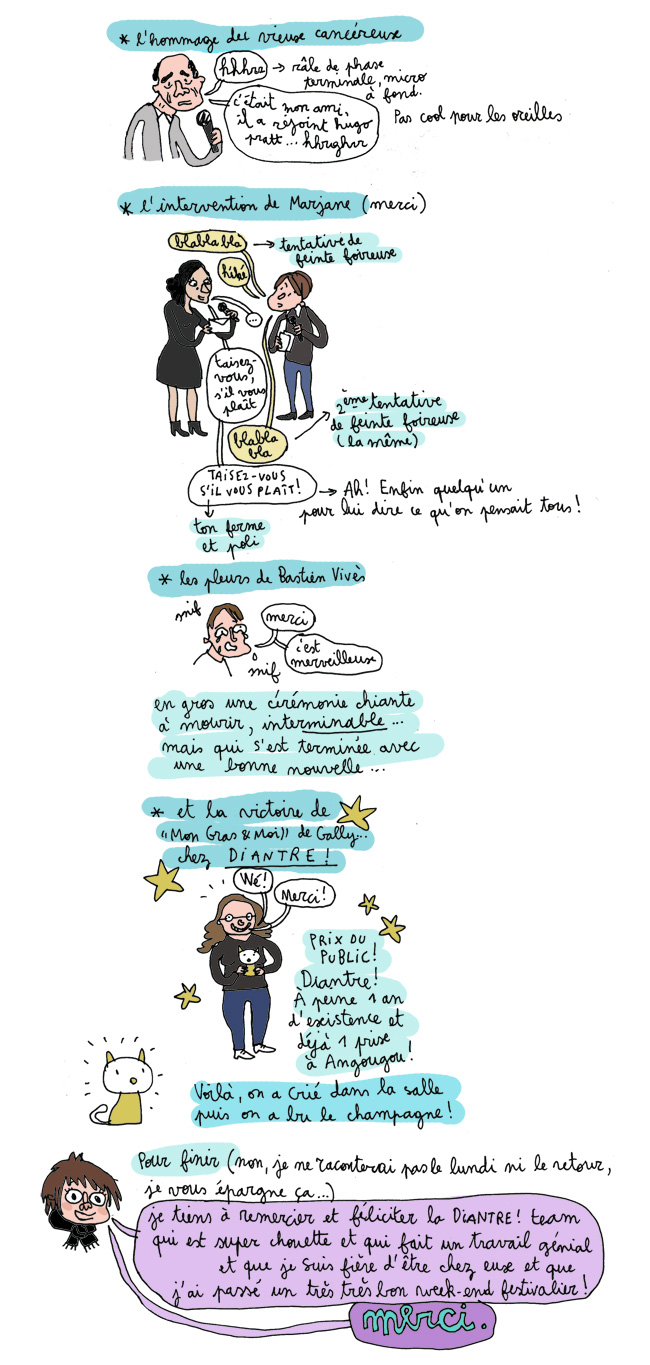 * l'hommage du vieux cancéreux
hhhrr
→ râle de phase
terminale, micro
à fond.
c'était mon ami,
il a rejoint hugo
pratt... hhrghrr
Pas cool pour les oreilles
* l'intervention de Marjane (merci)
blablabla
→ tentative de
feinte foireuse
hihé
...
taisez-
vous,
s'il vous
plaît
2ème tentative
de feinte foireuse
(la même)
blabla
bla
TAISEZ-VOUS
S'IL VOUS PLAÎT!
→ Ah! Enfin quelqu'un
pour lui dire ce qu'on pensait tous!
ton ferme
et poli
* les pleurs de Bastien Vivès
snif
merci
c'est
merveilleux
snif
en gros une cérémonie chiante
à mourir, interminable...
mais qui s'est terminée avec
une bonne nouvelle...
* et la victoire de
"Mon Gras & Moi" de Gally...
chez DIANTRE!
Wé!
Merci!
PRIX DU
PUBLIC!
Diantre!
À peine 1 an
d'existence et
déjà 1 prix
à Angougou!
Voilà, on a crié dans la salle
puis on a bu le champagne!
Pour finir (non, je ne raconterai pas le lundi ni le retour,
je vous épargne ça...)
je tiens à remercier et féliciter la DIANTRE! team
qui est super chouette et qui fait un travail génial
et que je suis fière d'être chez eux et que
j'ai passé un très très bon week-end festivalier!
merci.